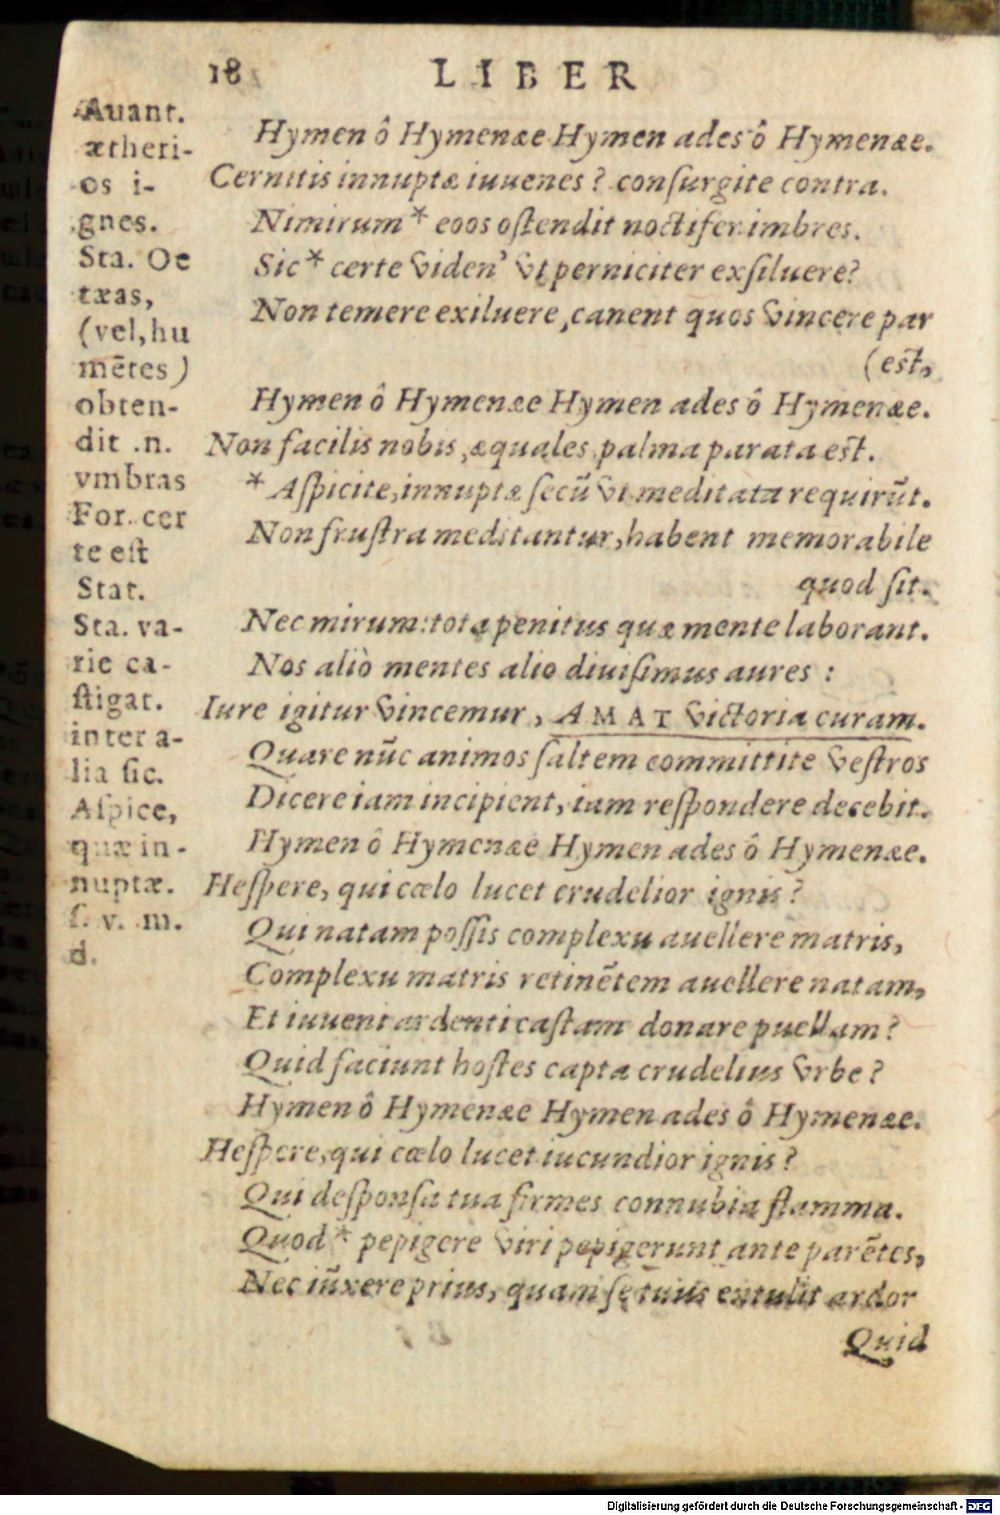 18 LIBER
Auant.
ætheri-
os i-
gnes.
Sta. Oe
tæas,
(vel, hu
mētes)
obten-
dit .n.
vmbras
For. cer
te eſt
Stat.
Sta. va-
rie ca-
ſtigat.
inter a-
lia ſic.
Aſpice,
quæ in-
nuptæ.
ſ. v. m.
d.
Hymen ô Hymenæe Hymen ades ô Hymenæe.
Cernitis innuptæ iuuenes? conſurgite contra.
Nimirum * eoos oſtendit noctifer imbres.
Sic * certe viden' vt perniciter exſiluere?
Non temere exiluere, canent quos vincere par
(eſt,
Hymen ô Hymenæe Hymen ades ô Hymenæe.
Non facilis nobis, æquales, palma parata eſt.
* Aſpicite, innuptæ ſecū vt meditata requirūt.
Non fruſtra meditantur, habent memorabile
quod ſit.
Nec mirum: tota penitus quæ mente laborant.
Nos aliò mentes alio diuiſimus aures:
Iure igitur vincemur, AMAT victoria curam.
Quare nūc animos ſaltem committite veſtros
Dicere iam incipient, iam reſpondere decebit.
Hymen ô Hymenæe Hymen ades ô Hymenæe.
Heſpere, qui cœlo lucet crudelior ignis?
Qui natam poſſis complexu auellere matris,
Complexu matris retinētem auellere natam,
Et iuueni ardenti caſtam donare puellam?
Quid faciunt hoſtes capta crudelius vrbe?
Hymen ô Hymenæe Hymen ades ô Hymenæe.
Heſpere, qui cœlo lucet iucundior ignis?
Qui deſponſa tua firmes connubia flamma.
Quod * pepigere viri pepigerunt ante parētes,
Nec iūxere prius, quam ſe tuus extulit ardor
Quid
Digitalisierung gefördert durch die Deutsche Forschungsgemeinschaft - DFG